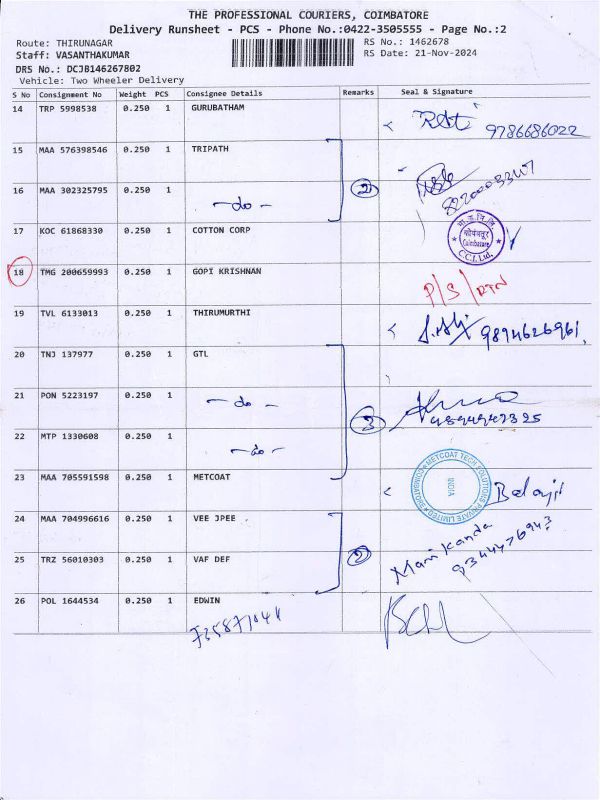 THE PROFESSIONAL COURIERS, COIMBATORE
Delivery Runsheet - PCS - Phone No.:0422-3505555 - Page No.:2
Route: THIRUNAGAR RS No.: 1462678
Staff: VASANTHAKUMAR RS Date: 21-Nov-2024
DRS No.: DCJB146267802
Vehicle: Two Wheeler Delivery
S No Consignment No Weight PCS Consignee Details Remarks Seal & Signature
14 TRP 5998538 0.250 1 GURUBATHAM
9786686022
15 MAA 576398546 0.250 1 TRIPATH
16 MAA 302325795 0.250 1 -do- 2
17 KOC 61868330 0.250 1 COTTON CORP
कोयंबतूर
Coimbatore
C.C.I. Ltd.
18 TMG 200659993 0.250 1 GOPI KRISHNAN
P/S/RTN
19 TVL 6133013 0.250 1 THIRUMURTHI
9894626961
20 TNJ 137977 0.250 1 GTL
21 PON 5223197 0.250 1 -do- 3
22 MTP 1330608 0.250 1 -do-
23 MAA 705591598 0.250 1 METCOAT
METCOAT TECH SOLUTIONS PRIVATE LIMITED
COIMBATORE
INDIA
Balaji
24 MAA 704996616 0.250 1 VEE JPEE
Manikanda
9344476943
25 TRZ 56010303 0.250 1 VAF DEF 2
26 POL 1644534 0.250 1 EDWIN